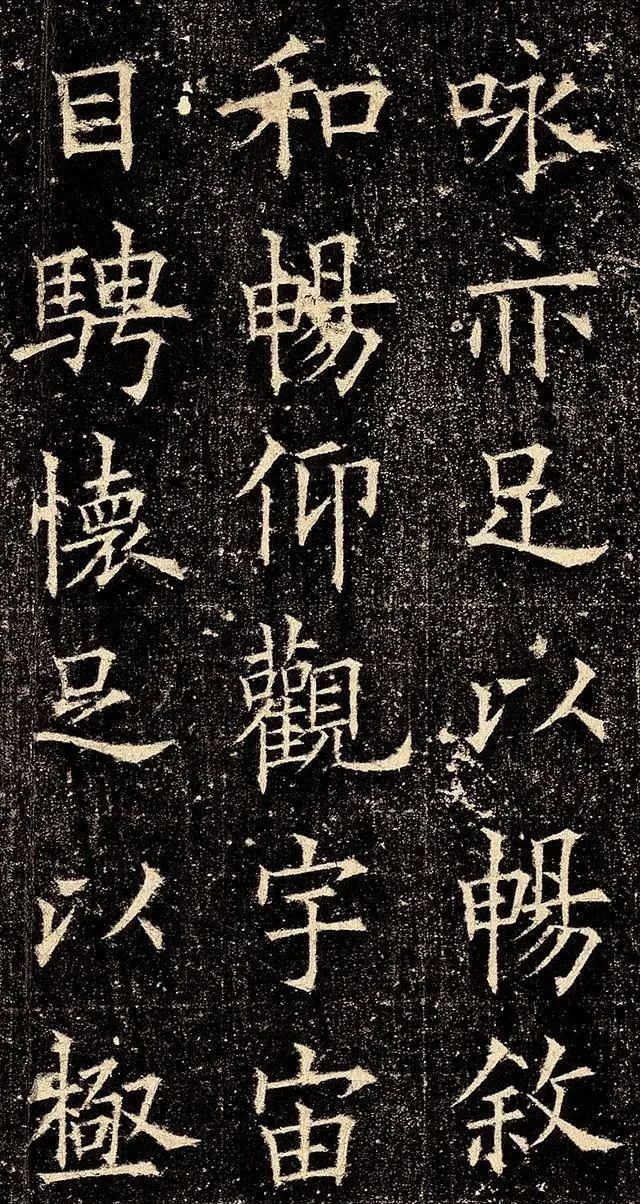 咏亦足以暢敘
和暢仰觀宇宙
目騁懷足以極